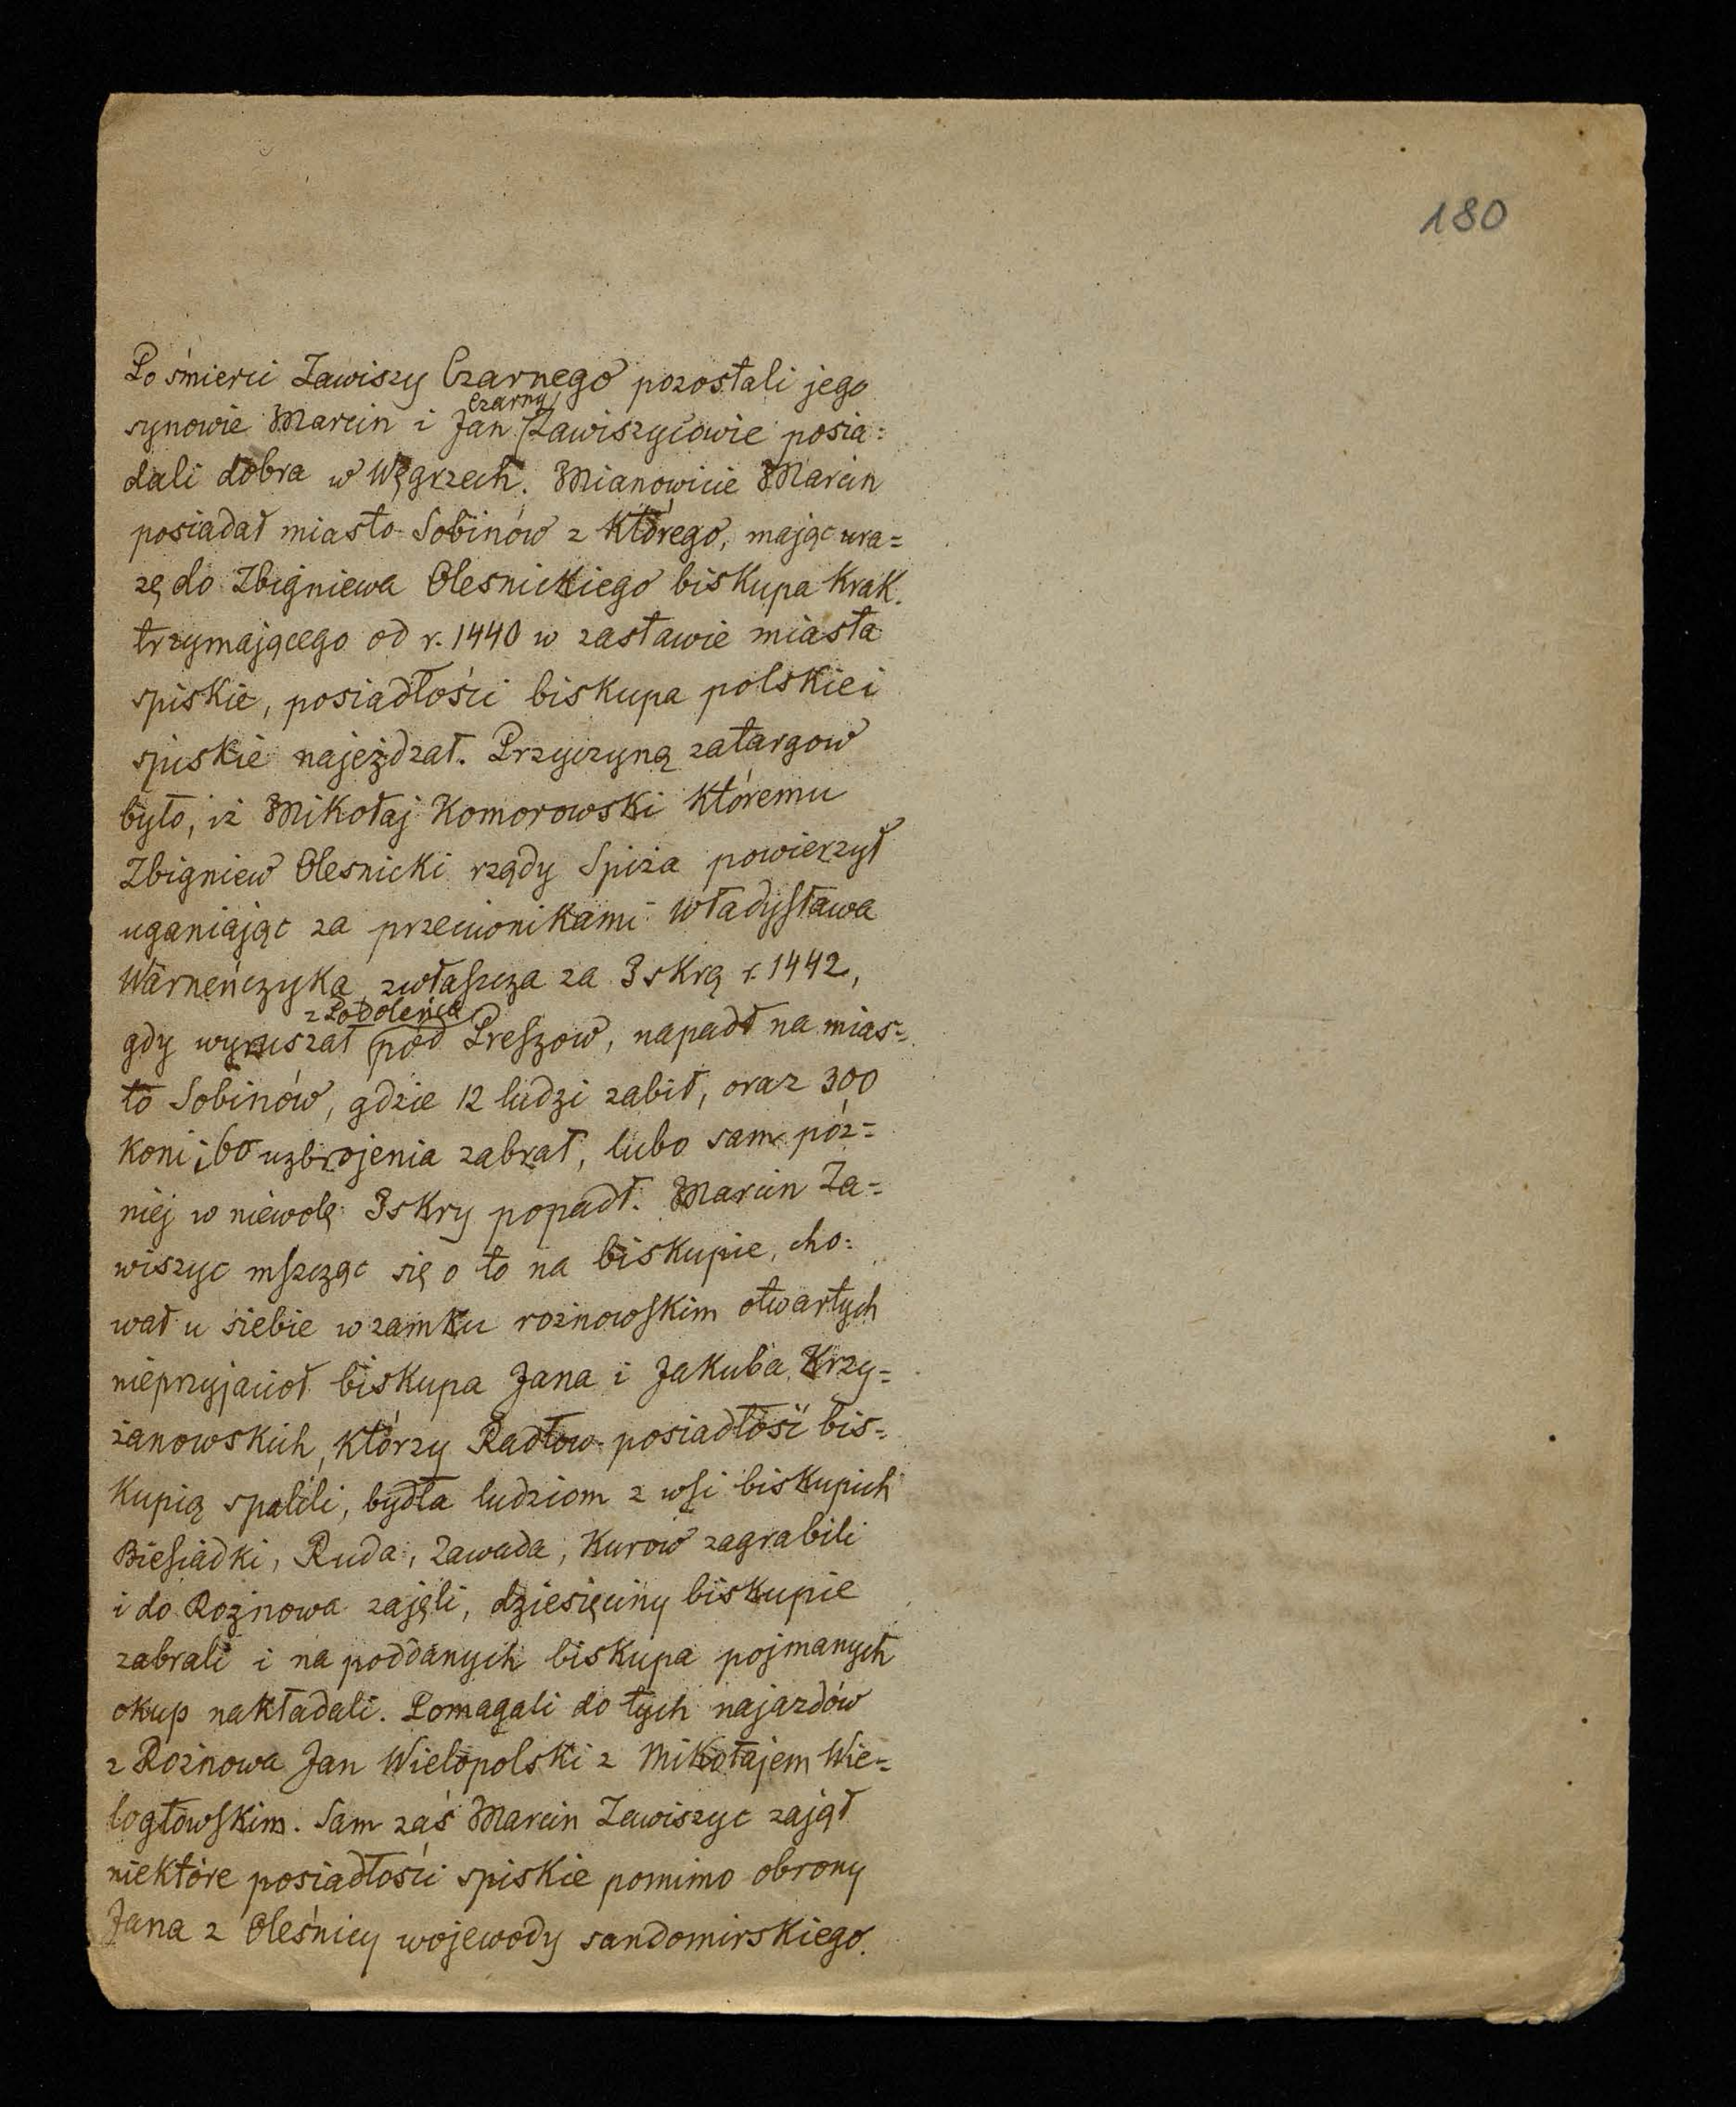 180
Po śmierci Zawiszy Czarnego pozostali jego
synowie Marcin i Jan Czarny Zawiszycowie posia=
dali dobra w Węgrzech. Mianowicie Marcin
posiadał miasto Sobinów z którego, mając ura=
zę do Zbigniewa Olesnickiego biskupa Krak.
trzymającego od r. 1440 w zastawie miasta
spiskie, posiadłości biskupa polskie i
spiskie najeżdzał. Przyczyną zatargow
było, iż Mikołaj Komorowski któremu
Zbigniew Olesnicki rządy Spiża powierzył
uganiając za przeciwnikami Władysława
Warneńczyka zwłaszcza za Iskrą r. 1442,
gdy wyruszał z Podoleńca pod Preszow, napadł na mias=
to Sobinów, gdzie 12 ludzi zabił, oraz 300
koni i 60 uzbrojenia zabrał, lubo sam póz=
niej w niewolę Iskry popadł. Marcin Za=
wiszyc mszcząc się o to na biskupie, cho=
wał u siebie w zamku roznowskim otwartych
nieprzyjaciół biskupa Jana i Jakuba Krzy=
żanowskich, którzy Radłow posiadłość bis=
kupią spalili, bydła ludziom z wsi biskupich
Biesiadki, Ruda, Zawada, Kurow zagrabili
i do Rożnowa zajęli, dziesięciny biskupie
zabrali i na poddanych biskupa pojmanych
okup nakładali. Pomagali do tych najazdów
z Rożnowa Jan Wielopolski z Mikołajem Wie=
logłowskim. Sam zaś Marcin Zawiszyc zajął
niektóre posiadłości spiskie pomimo obrony
Jana z Oleśnicy wojewody sandomirskiego.